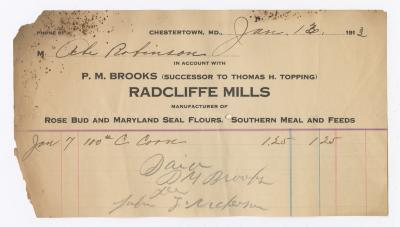 PHONE 87
CHESTERTOWN, MD., Jan. 13 1913
M Abe Robinson
IN ACCOUNT WITH
P. M. BROOKS (SUCCESSOR TO THOMAS H. TOPPING)
RADCLIFFE MILLS
MANUFACTURER OF
ROSE BUD AND MARYLAND SEAL FLOURS. SOUTHERN MEAL AND FEEDS
Jan 7 110# C Corn 1.25 1.25
Paid
P M Brooks
Per